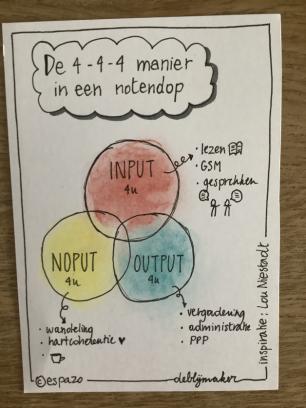 De 4-4-4 manier
in een notendop
INPUT
4u
• lezen
• GSM
• gesprekken
NOPUT
4u
OUTPUT
4u
• wandeling
• hartcoherentie ♥
•
• vergadering
• administratie
• PPP
inspiratie: Lou Niestadt
©espazo
deblijmaker